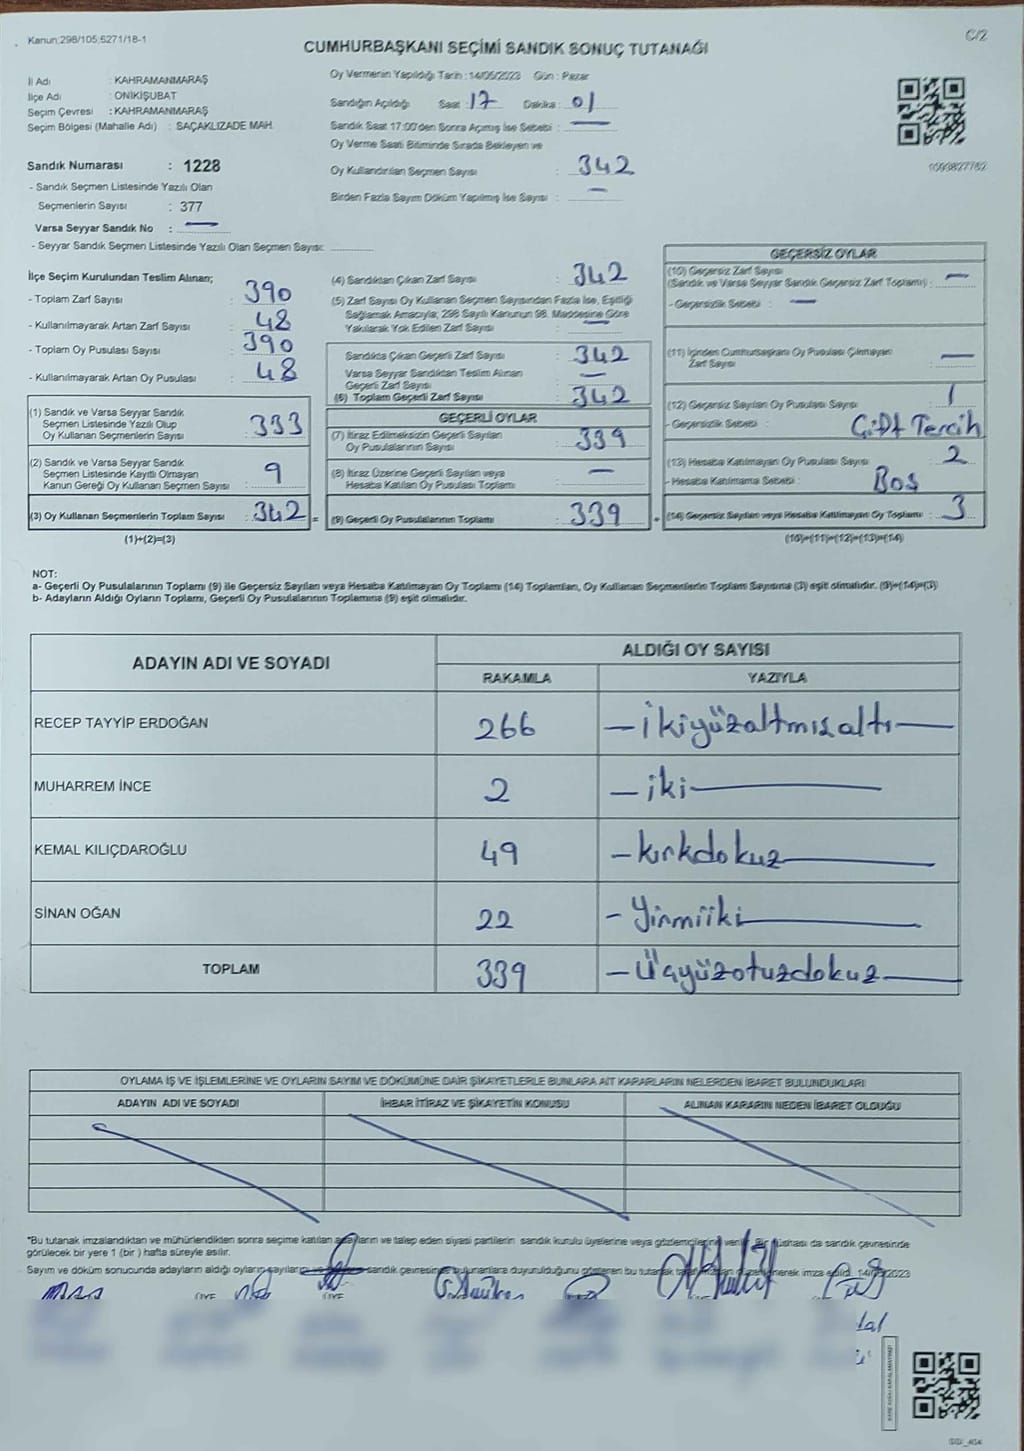 Kanun:298/105;6271/18-1
C/2
CUMHURBAŞKANI SEÇİMİ SANDIK SONUÇ TUTANAĞI
İl Adı : KAHRAMANMARAŞ
İlçe Adı : ONİKİŞUBAT
Seçim Çevresi : KAHRAMANMARAŞ
Seçim Bölgesi (Mahalle Adı) : SAÇAKLIZADE MAH.
Sandık Numarası : 1228
- Sandık Seçmen Listesinde Yazılı Olan
Seçmenlerin Sayısı : 377
Varsa Seyyar Sandık No : —
- Seyyar Sandık Seçmen Listesinde Yazılı Olan Seçmen Sayısı:
Oy Vermenin Yapıldığı Tarih : 14/05/2023 Gün : Pazar
Sandığın Açıldığı Saat : 17 Dakika : 01
Sandık Saat 17:00'den Sonra Açılmış İse Sebebi : —
Oy Verme Saati Bitiminde Sırada Bekleyen ve
Oy Kullandırılan Seçmen Sayısı : 342
Birden Fazla Sayım Döküm Yapılmış İse Sayısı : —
İlçe Seçim Kurulundan Teslim Alınan;
- Toplam Zarf Sayısı : 390
- Kullanılmayarak Artan Zarf Sayısı : 48
- Toplam Oy Pusulası Sayısı : 390
- Kullanılmayarak Artan Oy Pusulası : 48
(1) Sandık ve Varsa Seyyar Sandık
Seçmen Listesinde Yazılı Olup
Oy Kullanan Seçmenlerin Sayısı : 333
(2) Sandık ve Varsa Seyyar Sandık
Seçmen Listesinde Kayıtlı Olmayan
Kanun Gereği Oy Kullanan Seçmen Sayısı : 9
(3) Oy Kullanan Seçmenlerin Toplam Sayısı : 342 =
(1)+(2)=(3)
(4) Sandıktan Çıkan Zarf Sayısı : 342
(5) Zarf Sayısı Oy Kullanan Seçmen Sayısından Fazla İse, Eşitliği
Sağlamak Amacıyla; 298 Sayılı Kanunun 98. Maddesine Göre
Yakılarak Yok Edilen Zarf Sayısı : —
Sandıkta Çıkan Geçerli Zarf Sayısı : 342
Varsa Seyyar Sandıktan Teslim Alınan
Geçerli Zarf Sayısı : —
(6) Toplam Geçerli Zarf Sayısı : 342
GEÇERLİ OYLAR
(7) İtiraz Edilmeksizin Geçerli Sayılan
Oy Pusulalarının Sayısı : 339
(8) İtiraz Üzerine Geçerli Sayılan veya
Hesaba Katılan Oy Pusulası Toplamı : —
(9) Geçerli Oy Pusulalarının Toplamı : 339 +
GEÇERSİZ OYLAR
(10) Geçersiz Zarf Sayısı
(Sandık ve Varsa Seyyar Sandık Geçersiz Zarf Toplamı) : —
- Geçersizlik Sebebi : —
(11) İçinden Cumhurbaşkanı Oy Pusulası Çıkmayan
Zarf Sayısı : —
(12) Geçersiz Sayılan Oy Pusulası Sayısı : 1
- Geçersizlik Sebebi : Çift Tercih
(13) Hesaba Katılmayan Oy Pusulası Sayısı : 2
- Hesaba Katılmama Sebebi : Boş
(14) Geçersiz Sayılan veya Hesaba Katılmayan Oy Toplamı : 3
(10)+(11)+(12)+(13)=(14)
NOT:
a- Geçerli Oy Pusulalarının Toplamı (9) ile Geçersiz Sayılan veya Hesaba Katılmayan Oy Toplamı (14) Toplamları, Oy Kullanan Seçmenlerin Toplam Sayısına (3) eşit olmalıdır. (9)+(14)=(3)
b- Adayların Aldığı Oyların Toplamı, Geçerli Oy Pusulalarının Toplamına (9) eşit olmalıdır.
ADAYIN ADI VE SOYADI
ALDIĞI OY SAYISI
RAKAMLA YAZIYLA
RECEP TAYYİP ERDOĞAN 266 — ikiyüzaltmışaltı —
MUHARREM İNCE 2 — iki —
KEMAL KILIÇDAROĞLU 49 — kırkdokuz —
SİNAN OĞAN 22 — Yirmiiki —
TOPLAM 339 — Üçyüzotuzdokuz —
OYLAMA İŞ VE İŞLEMLERİNE VE OYLARIN SAYIM VE DÖKÜMÜNE DAİR ŞİKAYETLERLE BUNLARA AİT KARARLARIN NELERDEN İBARET BULUNDUKLARI
ADAYIN ADI VE SOYADI İHBAR İTİRAZ VE ŞİKAYETİN KONUSU ALINAN KARARIN NEDEN İBARET OLDUĞU
*Bu tutanak imzalandıktan ve mühürlendikten sonra seçime katılan adayların ve talep eden siyasi partilerin sandık kurulu üyelerine veya gözlemcilerine verilir. Bir nüshası da sandık çevresinde
görülecek bir yere 1 (bir ) hafta süreyle asılır.
Sayım ve döküm sonucunda adayların aldığı oyların sayılarını ve sandık çevresinde bulunanlara duyurulduğunu gösteren bu tutanak imza edildi. 14/05/2023
ÜYE ÜYE